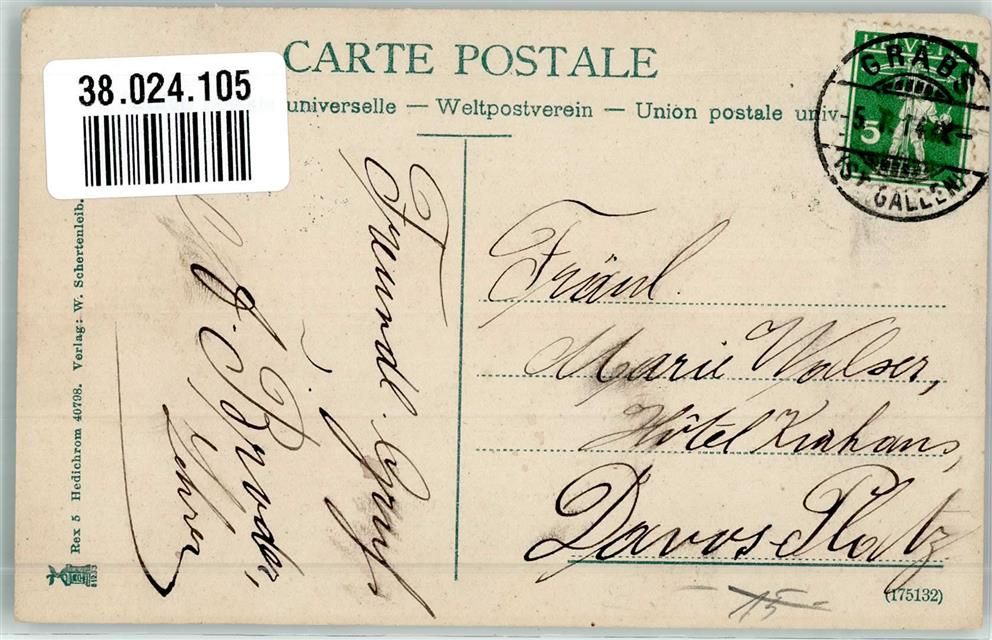 CARTE POSTALE
38.024.105
universelle — Weltpostverein — Union postale univ
HELVETIA
5
GRABS
(ST. GALLEN)
Freundl. Gruß
J. Broder,
Lehrer
Fräul.
Marie Walser,
Hôtel Kurhaus,
Davos-Platz
Rex 5 Hedichrom 40798. Verlag: W. Schertenleib.
15
(175132)